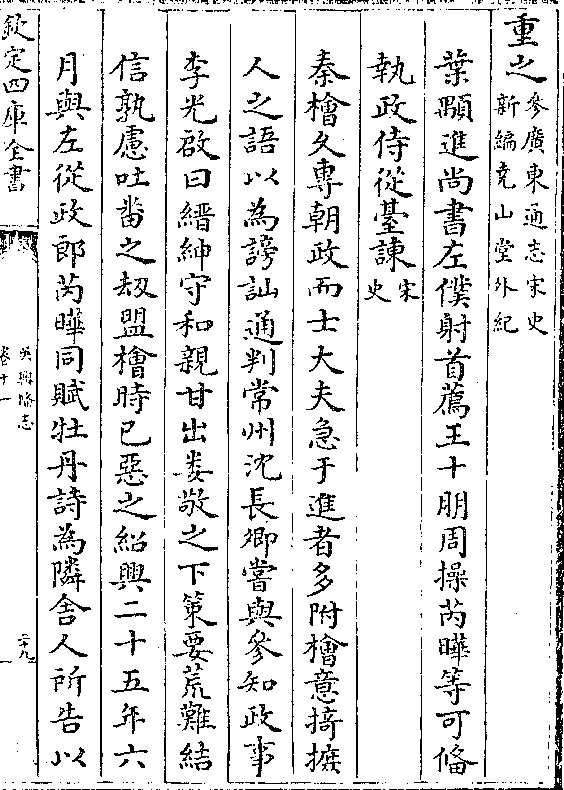 重之參廣東通志宋史
新編堯山堂外紀
葉顒進尚書左僕射首薦王十朋周操芮曄等可偹
執政侍從臺諫宋史
秦檜久專朝政而士大夫急于進者多附檜意掎摭
人之語以為謗訕通判常州沈長卿嘗與參知政事
李光啟曰縉紳守和親甘出婁敬之下策要荒難結
信孰慮吐蕃之刼盟檜時已惡之紹興二十五年六
月與左從政郎芮曄同賦牡丹詩為隣舍人所告以
欽定四庫全書
吳興備志
卷十一
二十九